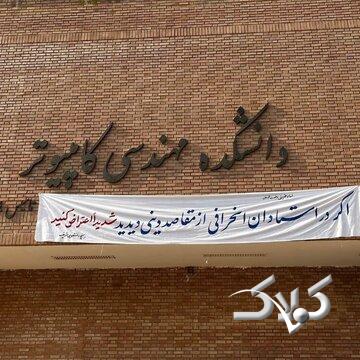 دانشکده مهندسی کامپیوتر
اگر در استادان انحرافی از مقاصد دینی دیدید شدیدا اعتراض کنید
کولاک